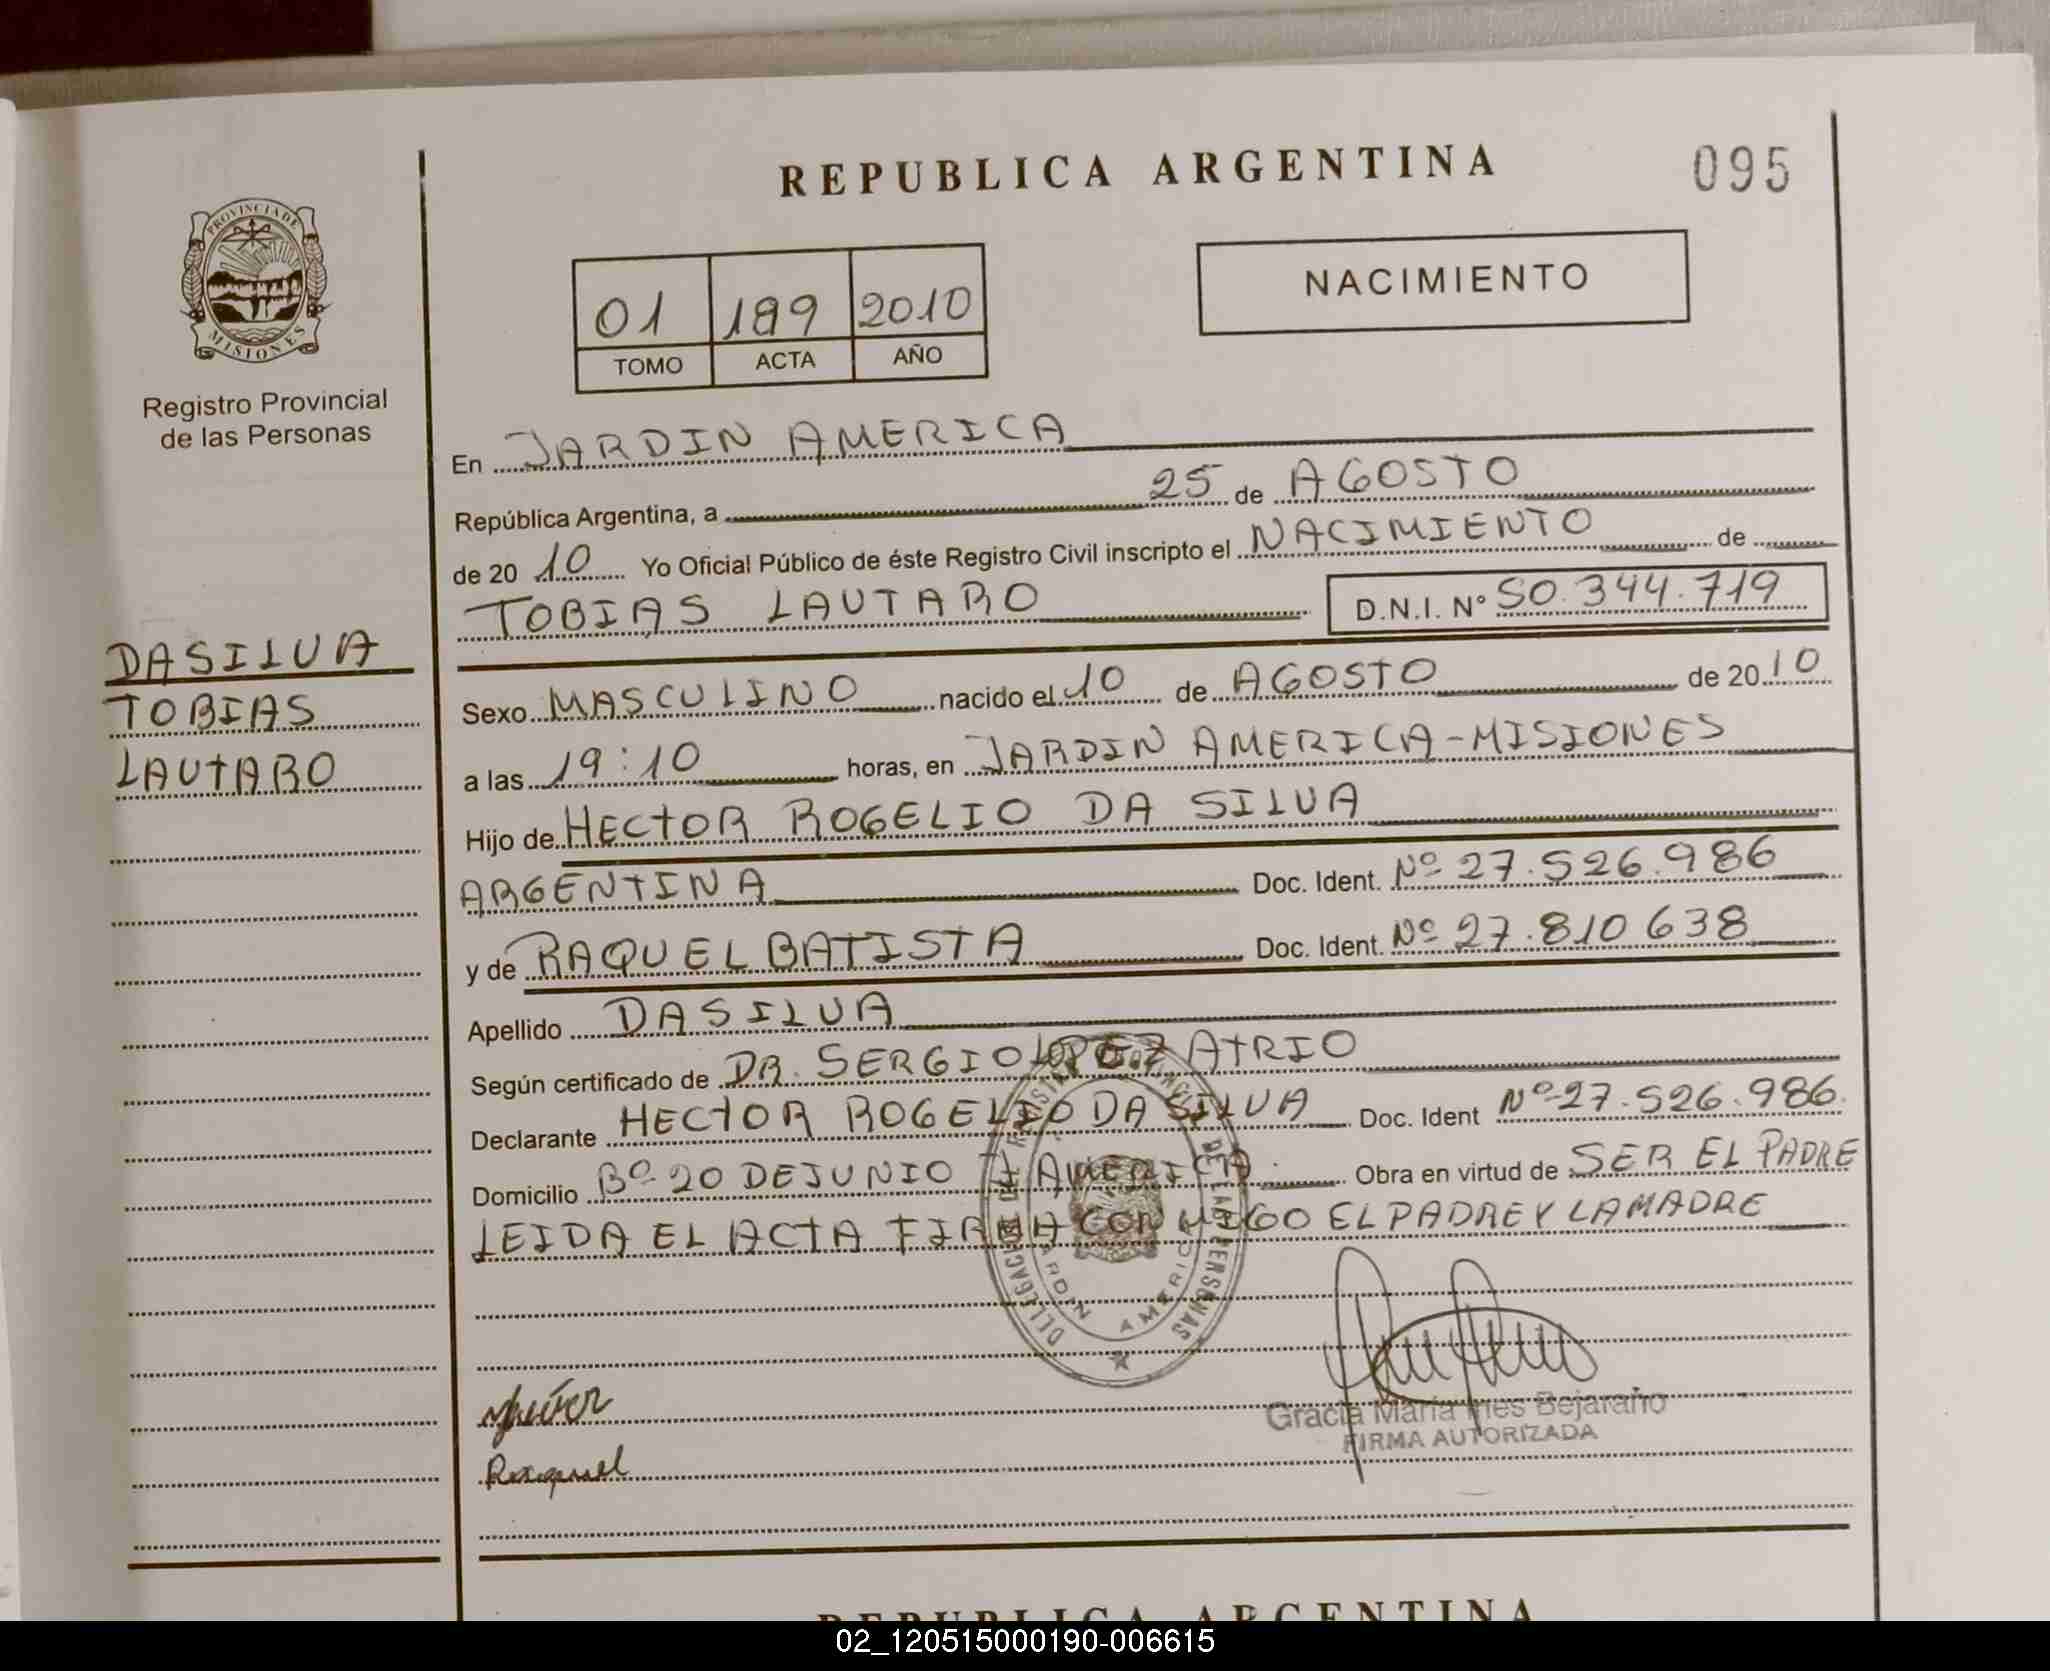 REPUBLICA ARGENTINA
095
PROVINCIA DE
MISIONES
Registro Provincial
de las Personas
01 189 2010
TOMO ACTA AÑO
NACIMIENTO
En JARDIN AMERICA
República Argentina, a 25 de AGOSTO
de 20 10 Yo Oficial Público de éste Registro Civil inscripto el NACIMIENTO de
TOBIAS LAUTARO D.N.I. N° 50.344.719
DASILVA
TOBIAS
LAUTARO
Sexo MASCULINO nacido el 10 de AGOSTO de 20 10
a las 19:10 horas, en JARDIN AMERICA-MISIONES
Hijo de HECTOR ROGELIO DA SILVA
ARGENTINA Doc. Ident. Nº 27.526.986
y de RAQUEL BATISTA Doc. Ident. Nº 27.810 638
Apellido DASILVA
Según certificado de DR. SERGIO LOPEZ ATRIO
Declarante HECTOR ROGELIO DA SILVA Doc. Ident Nº 27.526.986.
Domicilio Bº 20 DE JUNIO J. AMERICA. Obra en virtud de SER EL PADRE
LEIDA EL ACTA FIRMA CONMIGO EL PADRE Y LA MADRE
DE LAS PERSONAS
JARDIN AMERICA
Raquel
Gracia María Ines Bejaraño
FIRMA AUTORIZADA
REPUBLICA ARGENTINA
02_120515000190-006615